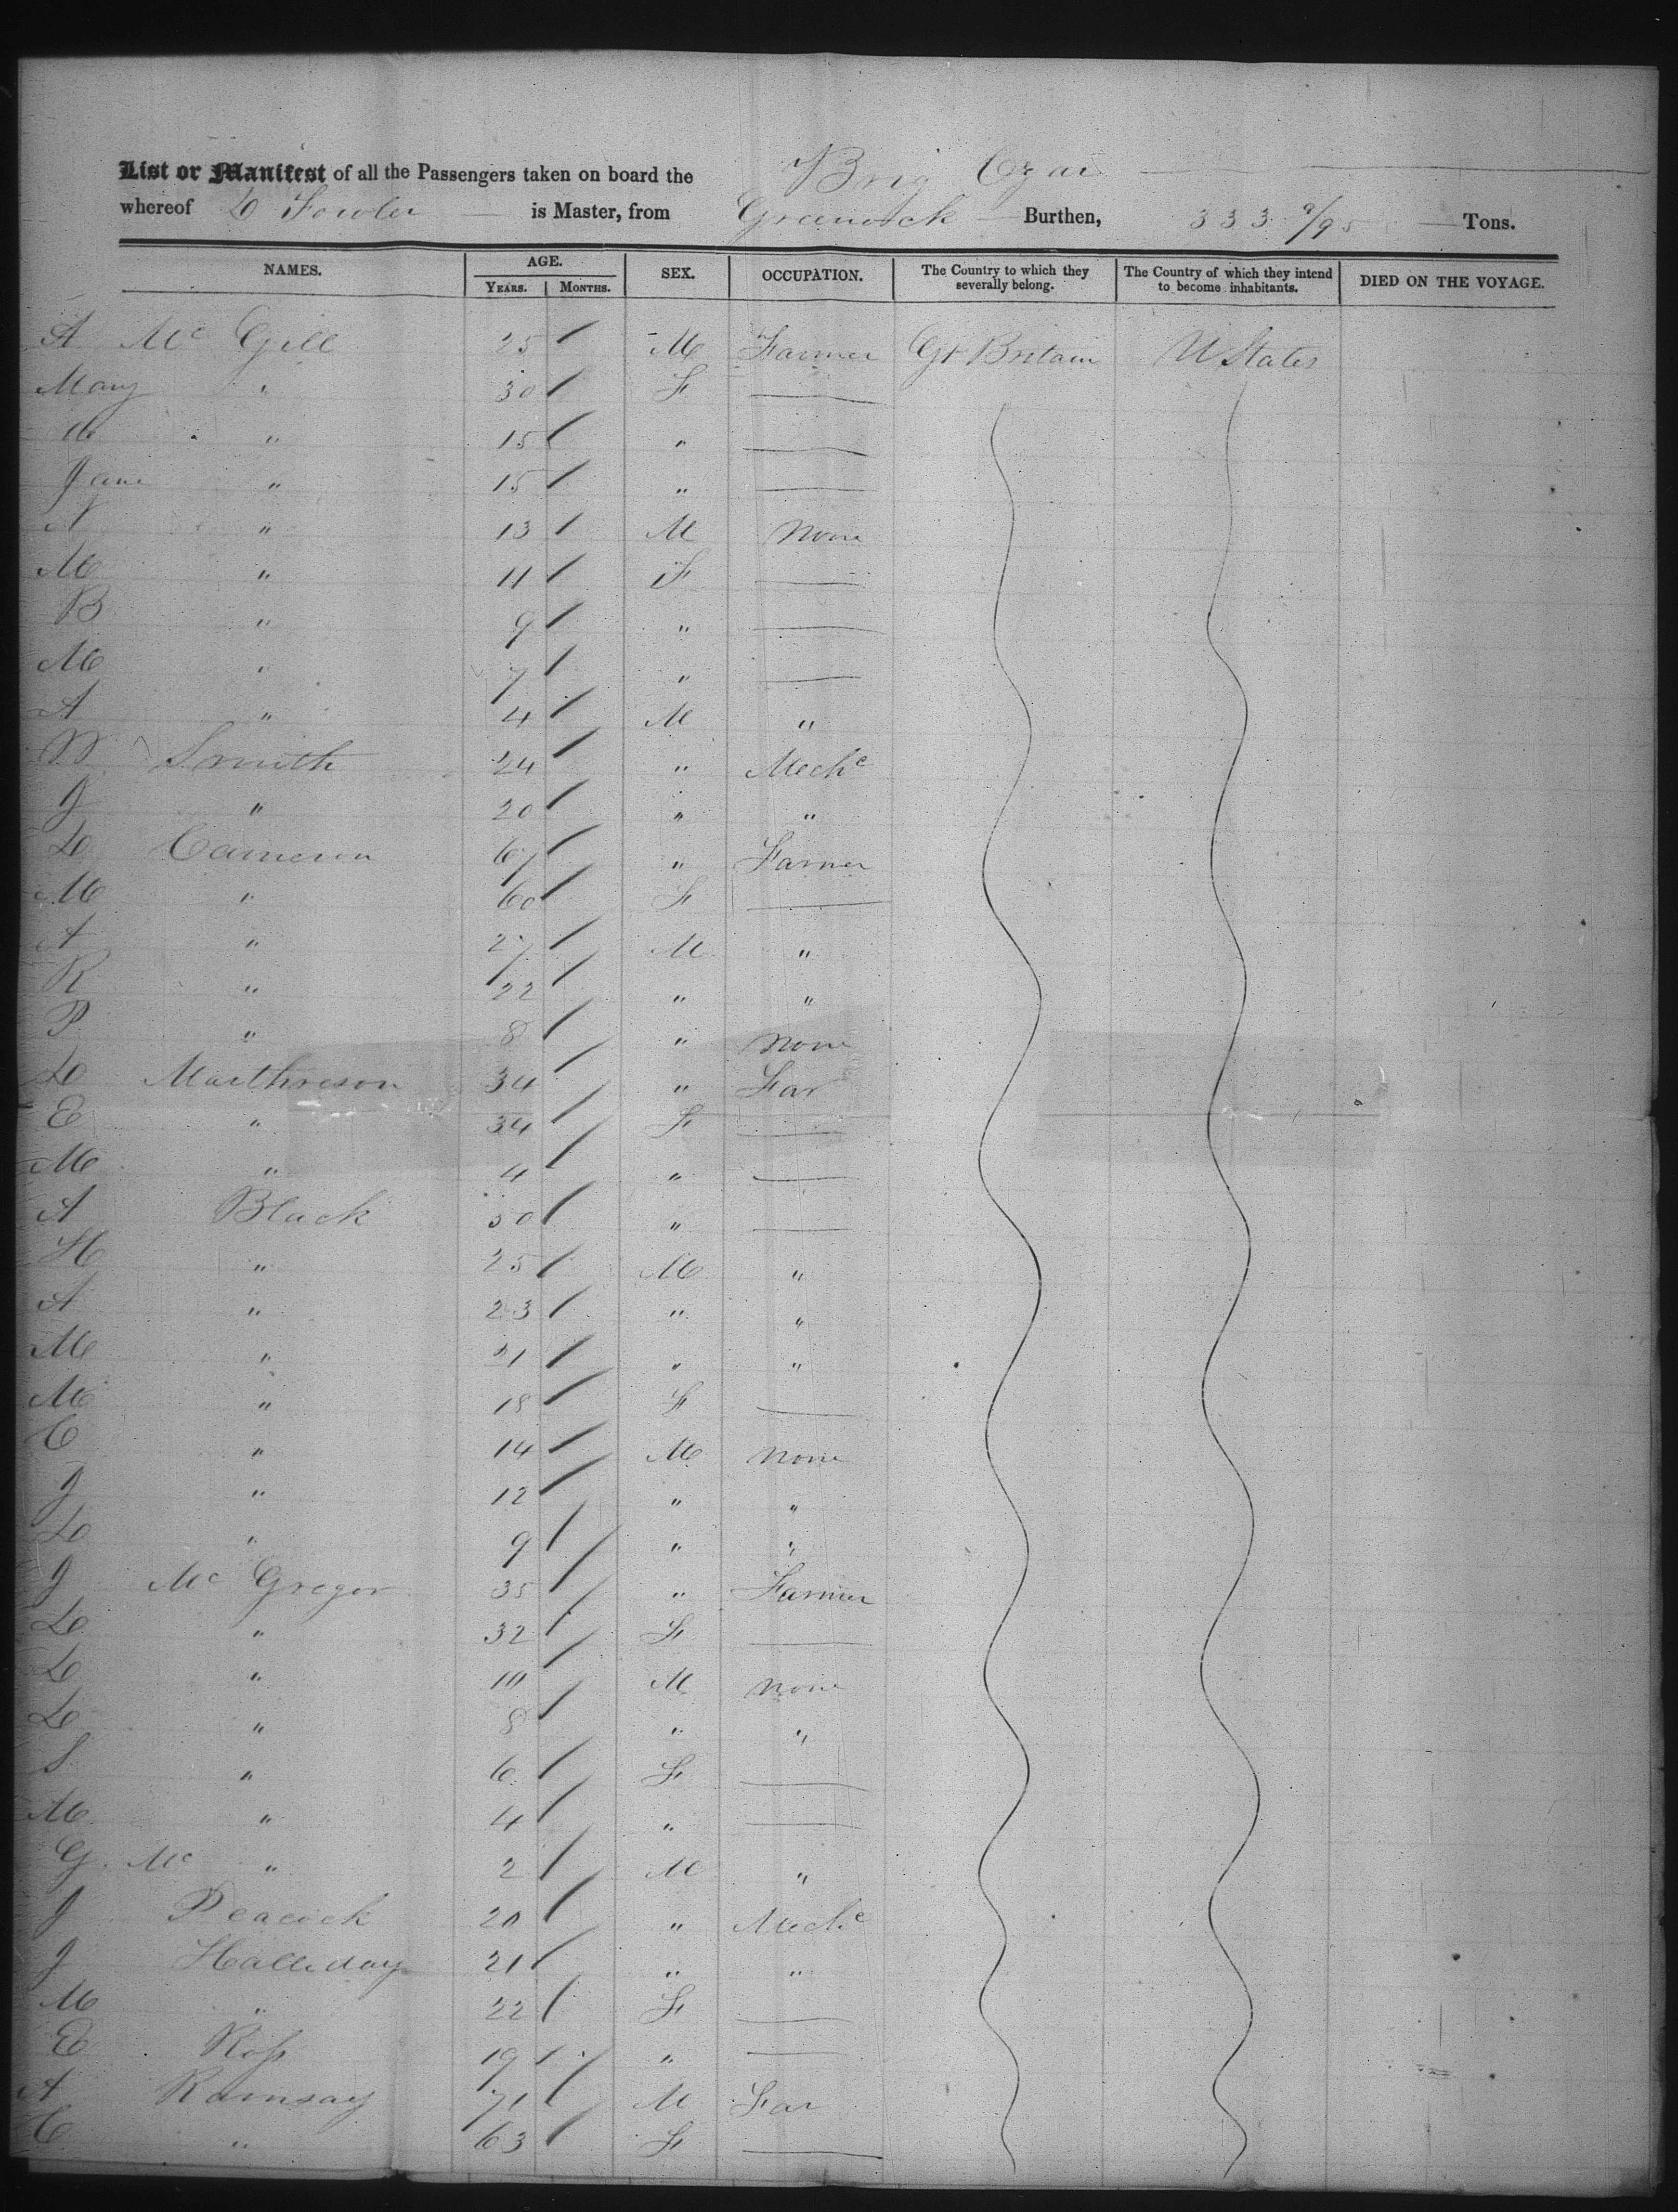 List or Manifest of all the Passengers taken on board the Brig Czar
whereof D Fowler is Master, from Greenock Burthen, 333 9/95 Tons.
NAMES. AGE. SEX. OCCUPATION. The Country to which they severally belong. The Country of which they intend to become inhabitants. DIED ON THE VOYAGE.
YEARS. MONTHS.
A Mc Gill 25 M Farmer Gt Britain U States
Mary " 30 F —
" 15 " —
Jane " 15 " —
" 13 M None
M " 11 F —
B " 9 " —
M " 7 " —
A " 4 M "
Smith 24 " Mechc
J " 20 " "
D Cameron 67 " Farmer
M " 60 F —
A " 27 M "
R " 22 " "
P " 8 " None
D Maithreson 34 " Far
E " 34 F —
M " 4 " —
A Black 50 " —
H " 25 M "
A " 23 " "
M " 21 " "
M " 18 F —
C " 14 M None
J " 12 " "
D " 9 " "
J Mc Gregor 35 " Farmer
D " 32 F —
D " 10 M None
D " 8 " "
S " 6 F —
M " 4 " —
G Mc " 2 M "
J Peacock 20 " Mechc
J Halliday 21 " "
M " 22 F —
E Ross 19 " —
A Ramsay 71 M Far
C " 63 F —